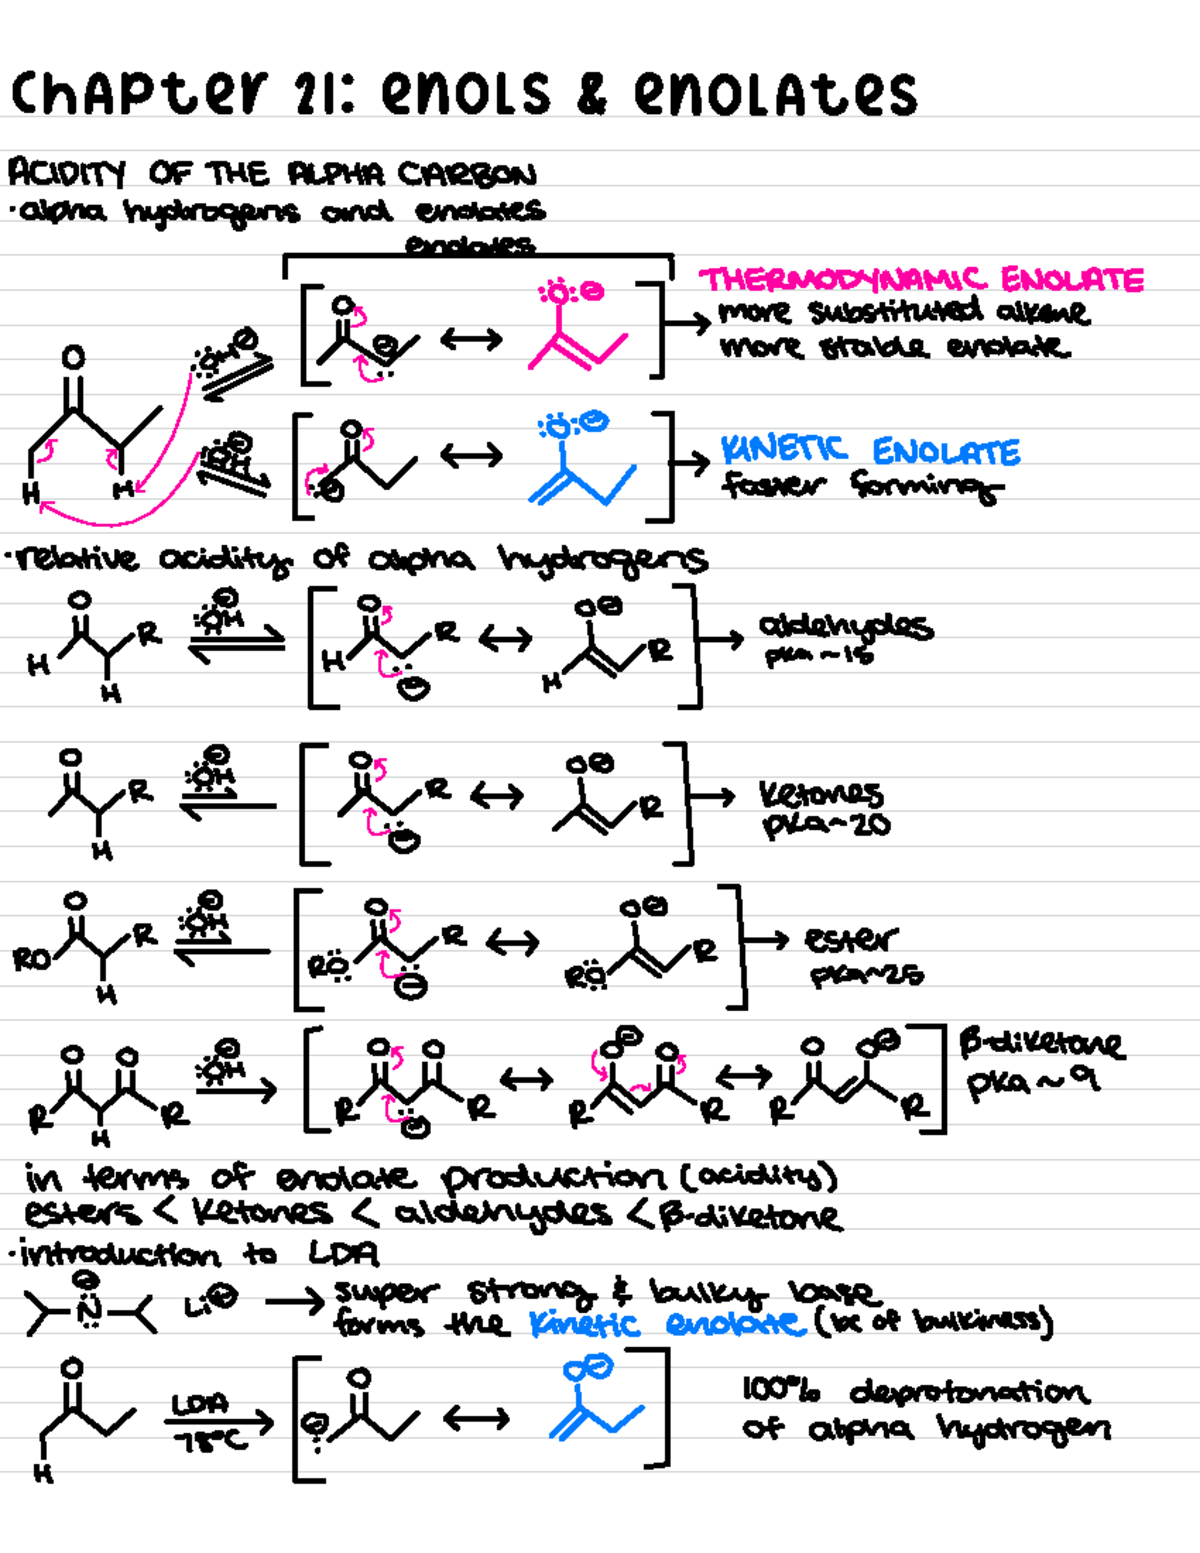 Chapter 21: enols & enolates
ACIDITY OF THE ALPHA CARBON
·alpha hydrogens and enolates
enolates
THERMODYNAMIC ENOLATE
more substituted alkene
more stable enolate
KINETIC ENOLATE
faster forming
·relative acidity of alpha hydrogens
aldehydes
pka ~15
ketones
pKa~20
ester
pKa~25
β-diketone
pKa ~ 9
in terms of enolate production (acidity)
esters < ketones < aldehydes < β-diketone
·introduction to LDA
N Li⊕ → super strong & bulky base
forms the kinetic enolate (bc of bulkiness)
LDA
78°C
100% deprotonation
of alpha hydrogen